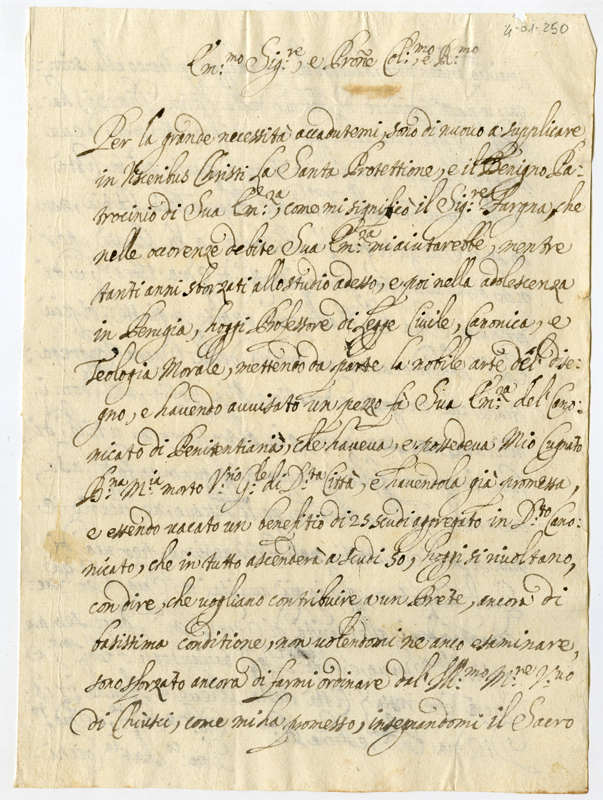 4-01-250
Em:mo Sig:re, e Prone Col:mo, e R:mo
Per la grande necessità accadutemi, sono di nuovo a supplicare
in Visceribus Christi la Santa Protettione, e il Benigno Pa-
trocinio di Sua Em:za, come mi significò il Sig:re Fargna, che
nelle occorenze debite Sua Em:za mi aiutarebbe, mentre
tanti anni sforzati allo studio adesso, e poi nella adolescenza
in Perugia, hoggi Professore di Legge Civile, Canonica, e
Teologia Morale, mettendo da parte la nobile arte del Dise-
gno, e havendo avvisato un pezzo fà Sua Em:za del Cano-
nicato di Penitentiaria, che haveva, e possedeva Mio Cugnato
B:na M:ia morto V:rio G:le di D:ta Città, e havendola già promessa,
e essendo vacato un benefitio di 25 scudi aggregato in D:to Cano-
nicato, che in tutto ascenderà a scudi 50, hoggi si rivoltano,
con dire, che vogliano contribuire a un Prete, ancora di
basissima conditione, non volendomi ne anco esaminare,
sono sforzato ancora di farmi ordinare dal Ill:mo M:re V:vo
di Chiusi, come mi ha promesso, insegnandomi il Sacro